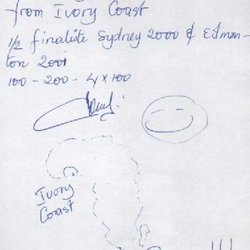 from Ivory Coast
1/2 finalite Sydney 2000 & Edmon-
ton 2001
100 - 200 - 4 x 100
Ivory
Coast